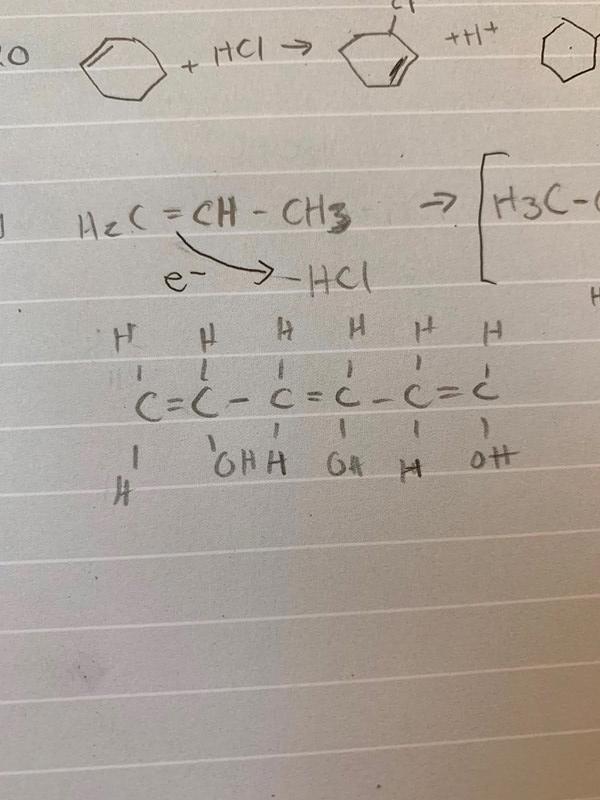 Cl
20 + HCl → +H+
H2C = CH - CH3 → [H3C-
e- -HCl
H
H H H H H H
C=C - C=C - C=C
H OH H OH H OH